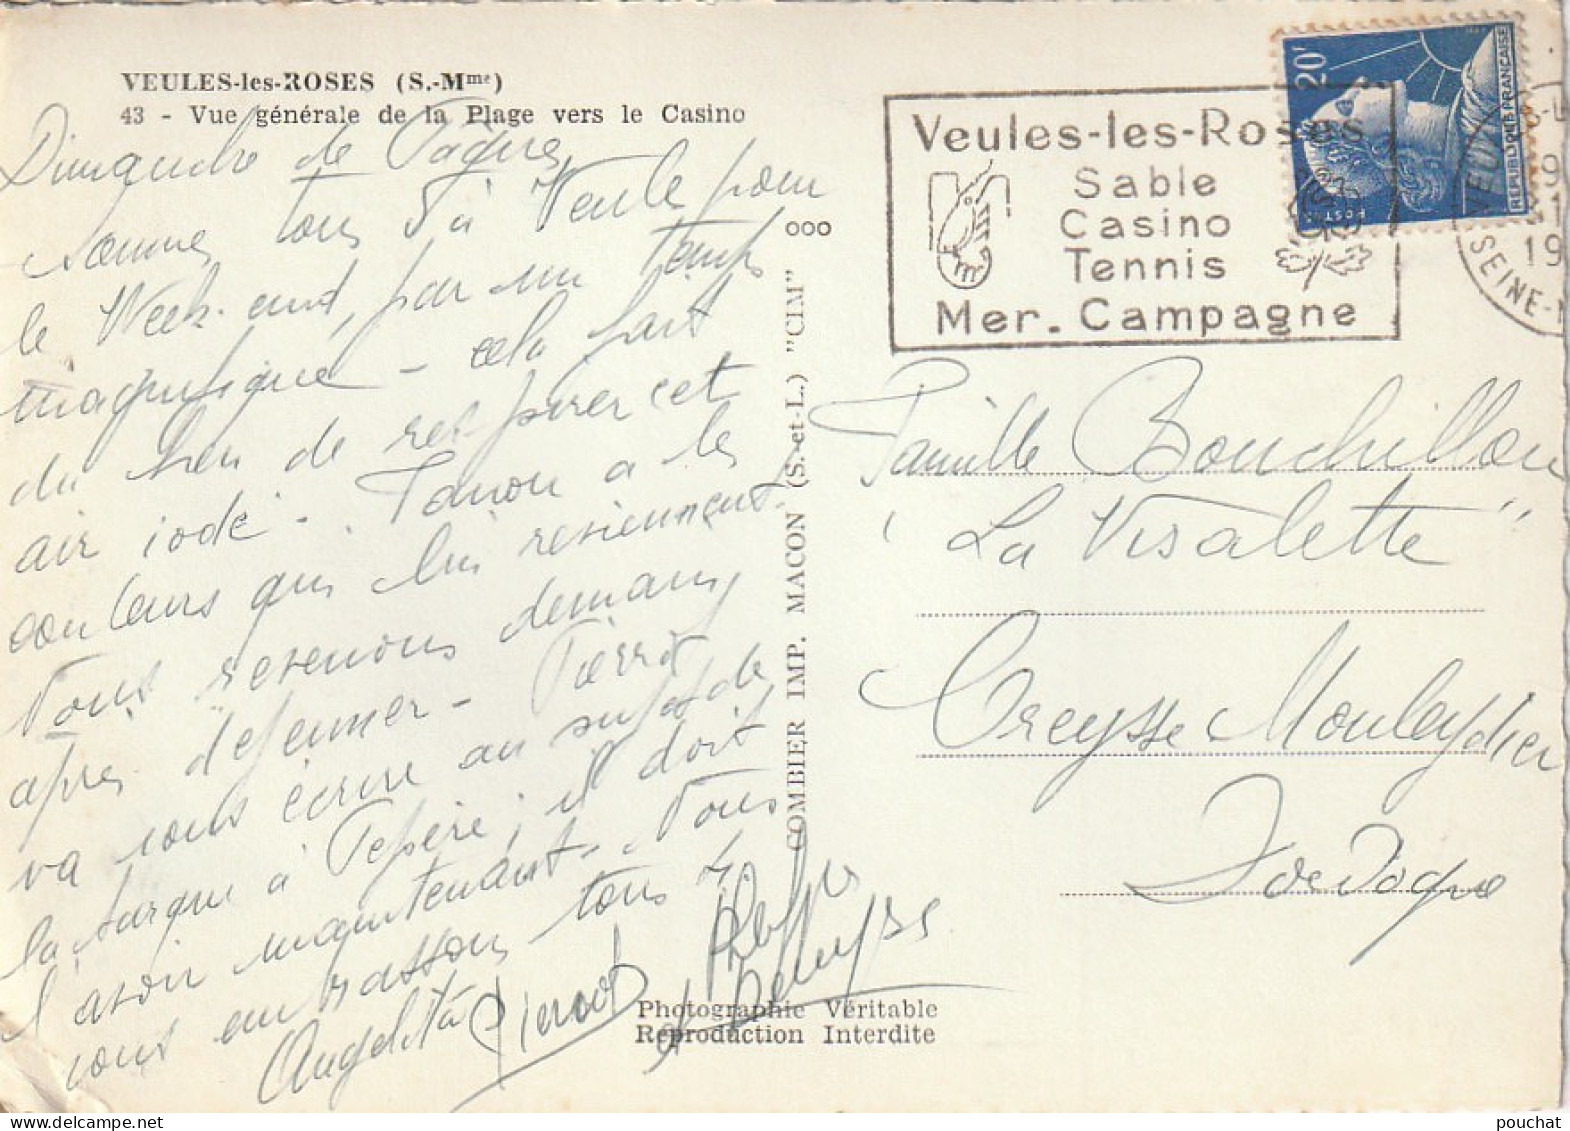 VEULES-les-ROSES (S.-Mme)
43 - Vue générale de la Plage vers le Casino
Dimanche de Pâques
Sommes tous à Veule pour
le Week-end, par un temps
magnifique - cela fait
du bien de respirer cet
air iodé - Tanou a les
couleurs qui lui reviennent.
Nous revenons demain,
après déjeuner - Pierrot
va vous écrire au sujet de
la barque à Pépère; il doit
l'avoir maintenant. Nous
vous embrassons tous 4.
Angelita Pierrot
et
COMBIER IMP. MACON (S.-et-L.) "CIM"
ooo
Photographie Véritable
Reproduction Interdite
Veules-les-Roses
Sable
Casino
Tennis
Mer. Campagne
20F
POSTES
REPUBLIQUE FRANÇAISE
VEUL
SEINE-
19
Famille Bouchillou
"La Visalette"
Creysse Mouleydier
Dordogne
pouchat